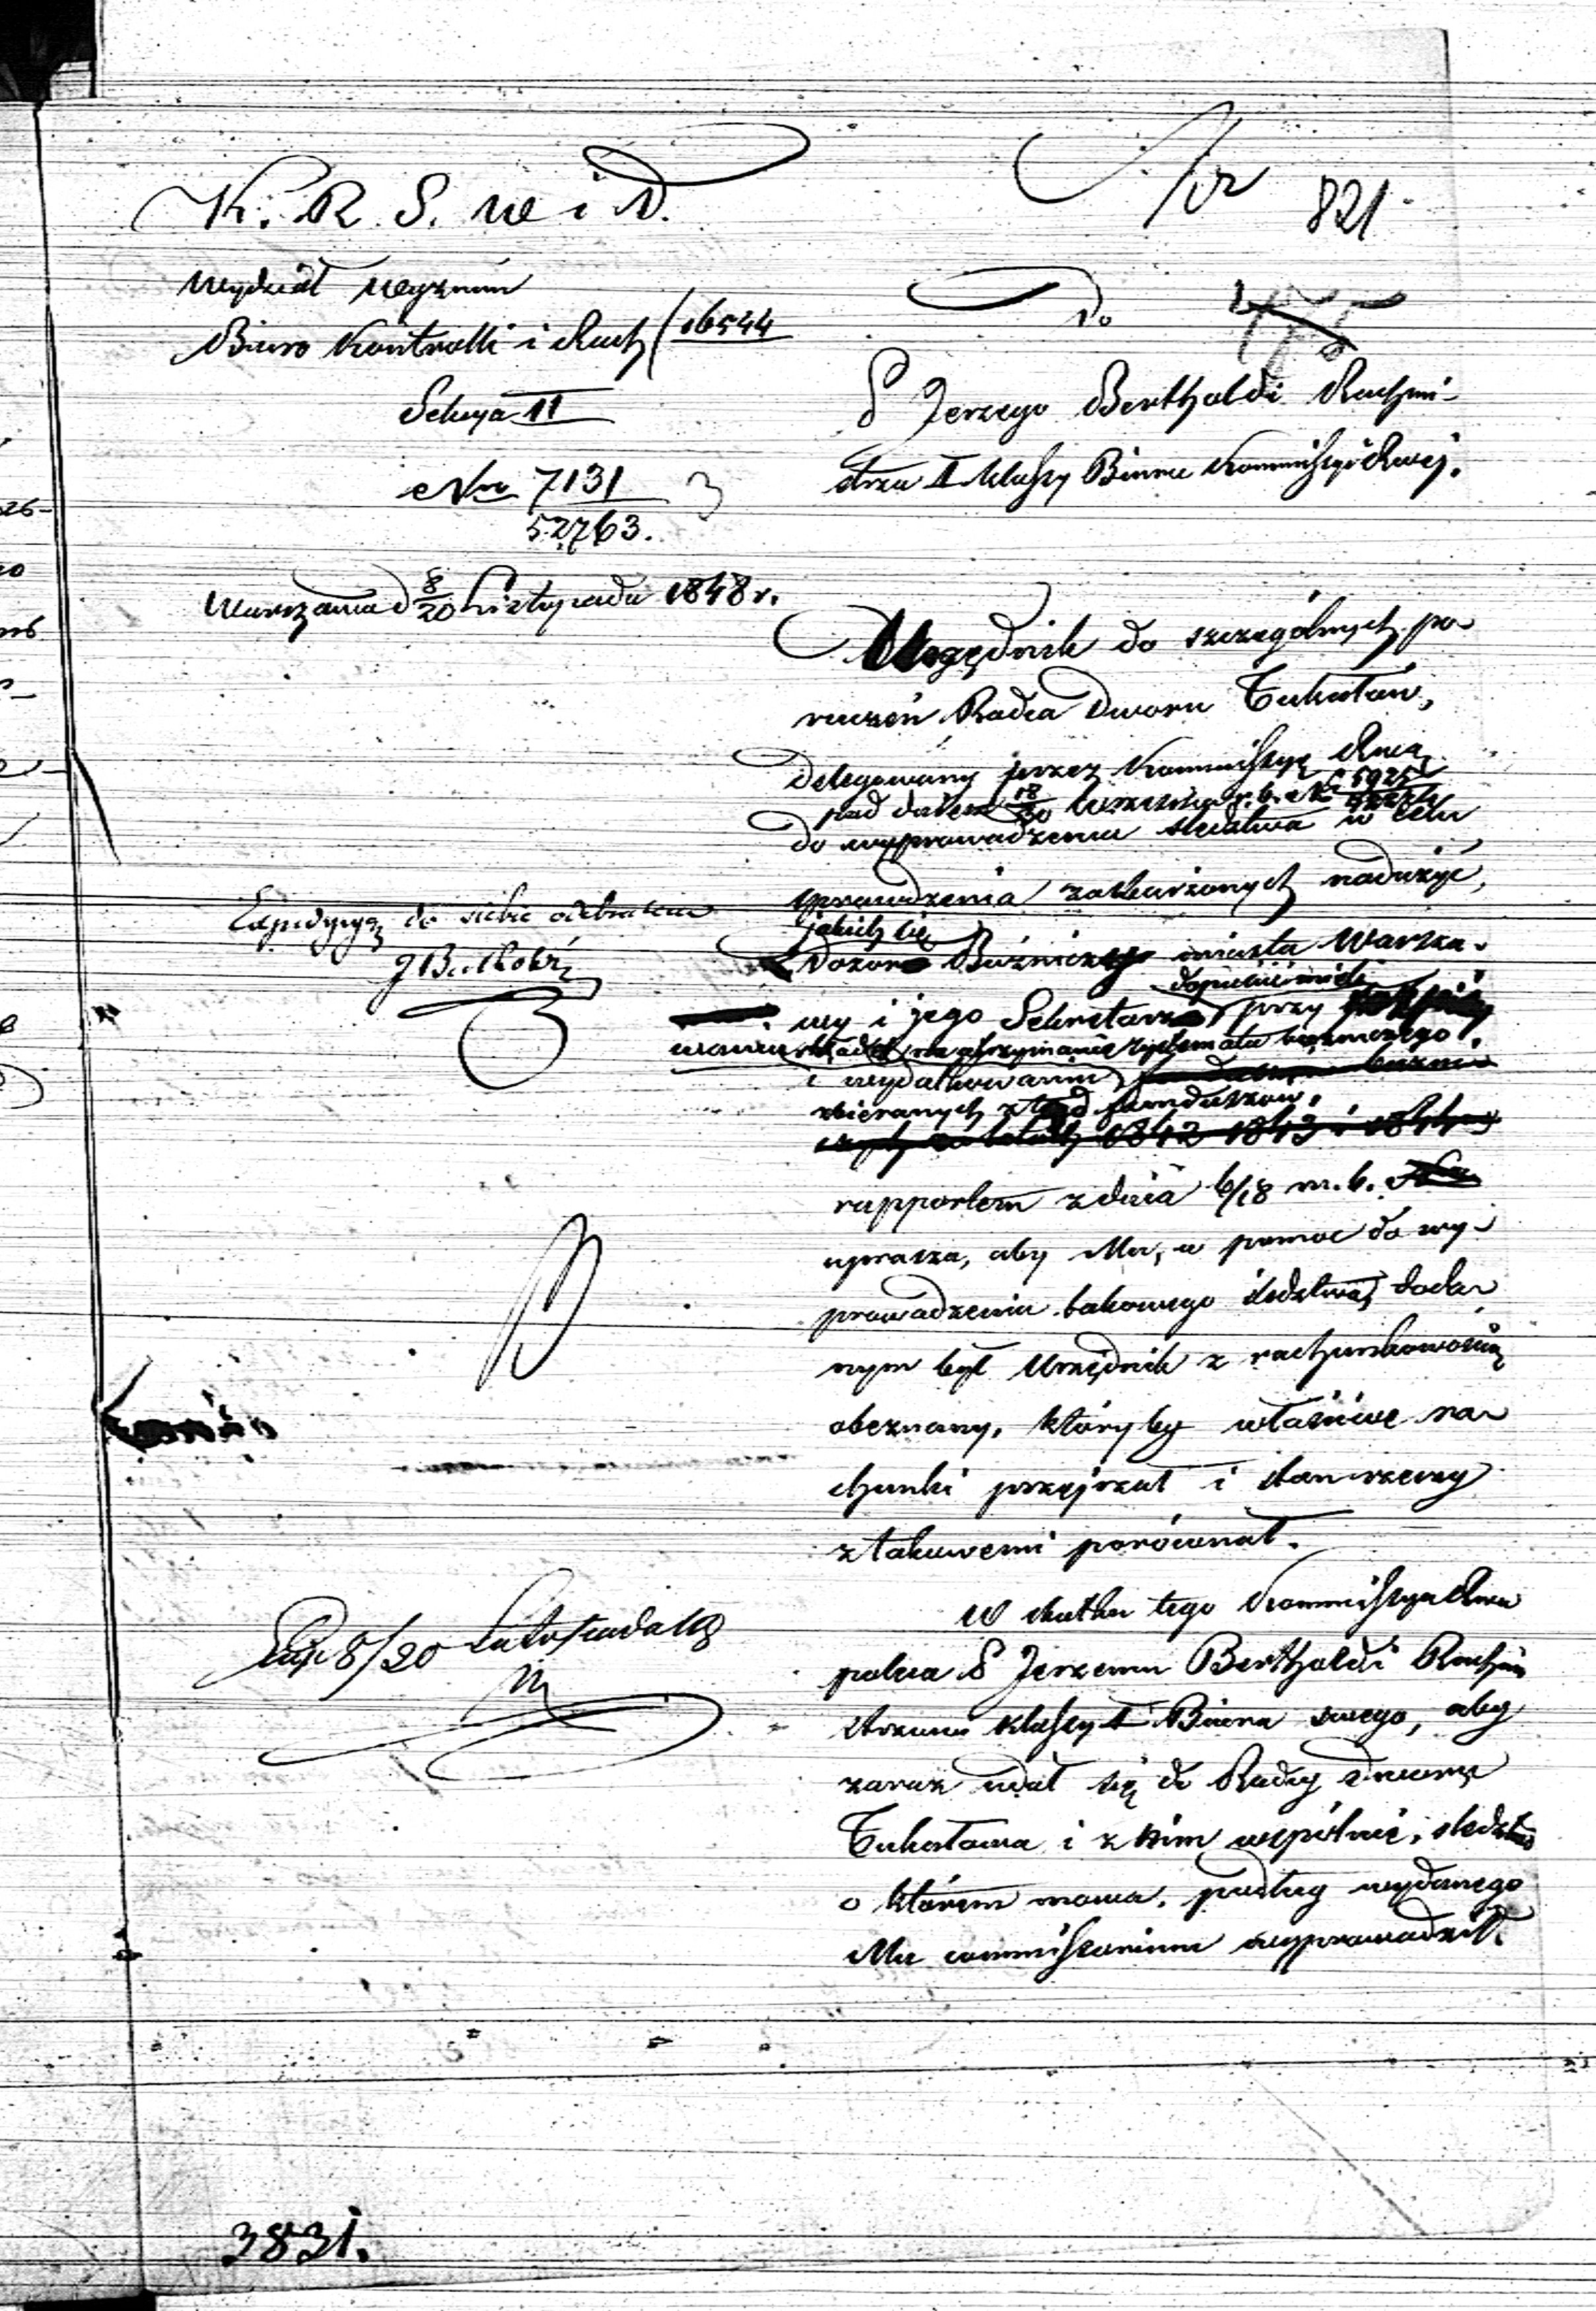 K. R. S. W i D.
Nr 821
Wydział Wyznań
Biuro Kontrolli i Rach / 16544
Sekcya II
Nro 7131
52763.
Warszawa d 8/20 Listopada 1848 r.
Do
P Jerzego Bertholdi Rachmi-
strza II klassy Biura Kommissyi Rwej.
Urzędnik do szczególnych po-
ruczeń Radca Dworu Tukałło,
delegowany przez Kommissyą Rwą
pod datem 18/30 Września r. b. No 5925
do wyprowadzenia śledztwa w celu
sprawdzenia zaskarżonych nadużyć,
jakich się
Dozor Bużniczy miasta Warsza-
dopuścić mieli
wy i jego Sekretarz przy
składek na utrzymanie systematu bużniczego
i wydatkowaniu
zbieranych ztąd funduszów.
rapportem z dnia 6/18 m. b.
uprasza, aby Mu, w pomoc do wy-
prowadzenia takowego śledztwa, doda-
nym był Urzędnik z rachunkowością
obeznany, któryby właściwe ra-
chunki przejrzał i stan rzeczy
z takowemi porównał.
W skutku tego Kommissya Rwa
poleca P Jerzemu Bertholdi Rachmi-
strzowi klassy II Biura swego, aby
zaraz udał się do Radcy Dworu
i z Nim wspólnie, śledztwo
o którem mowa, podług wydanego
Mu commissorium wyprowadził.
Expedycyą do siebie odebrałem
8/20 Listopada
3831.